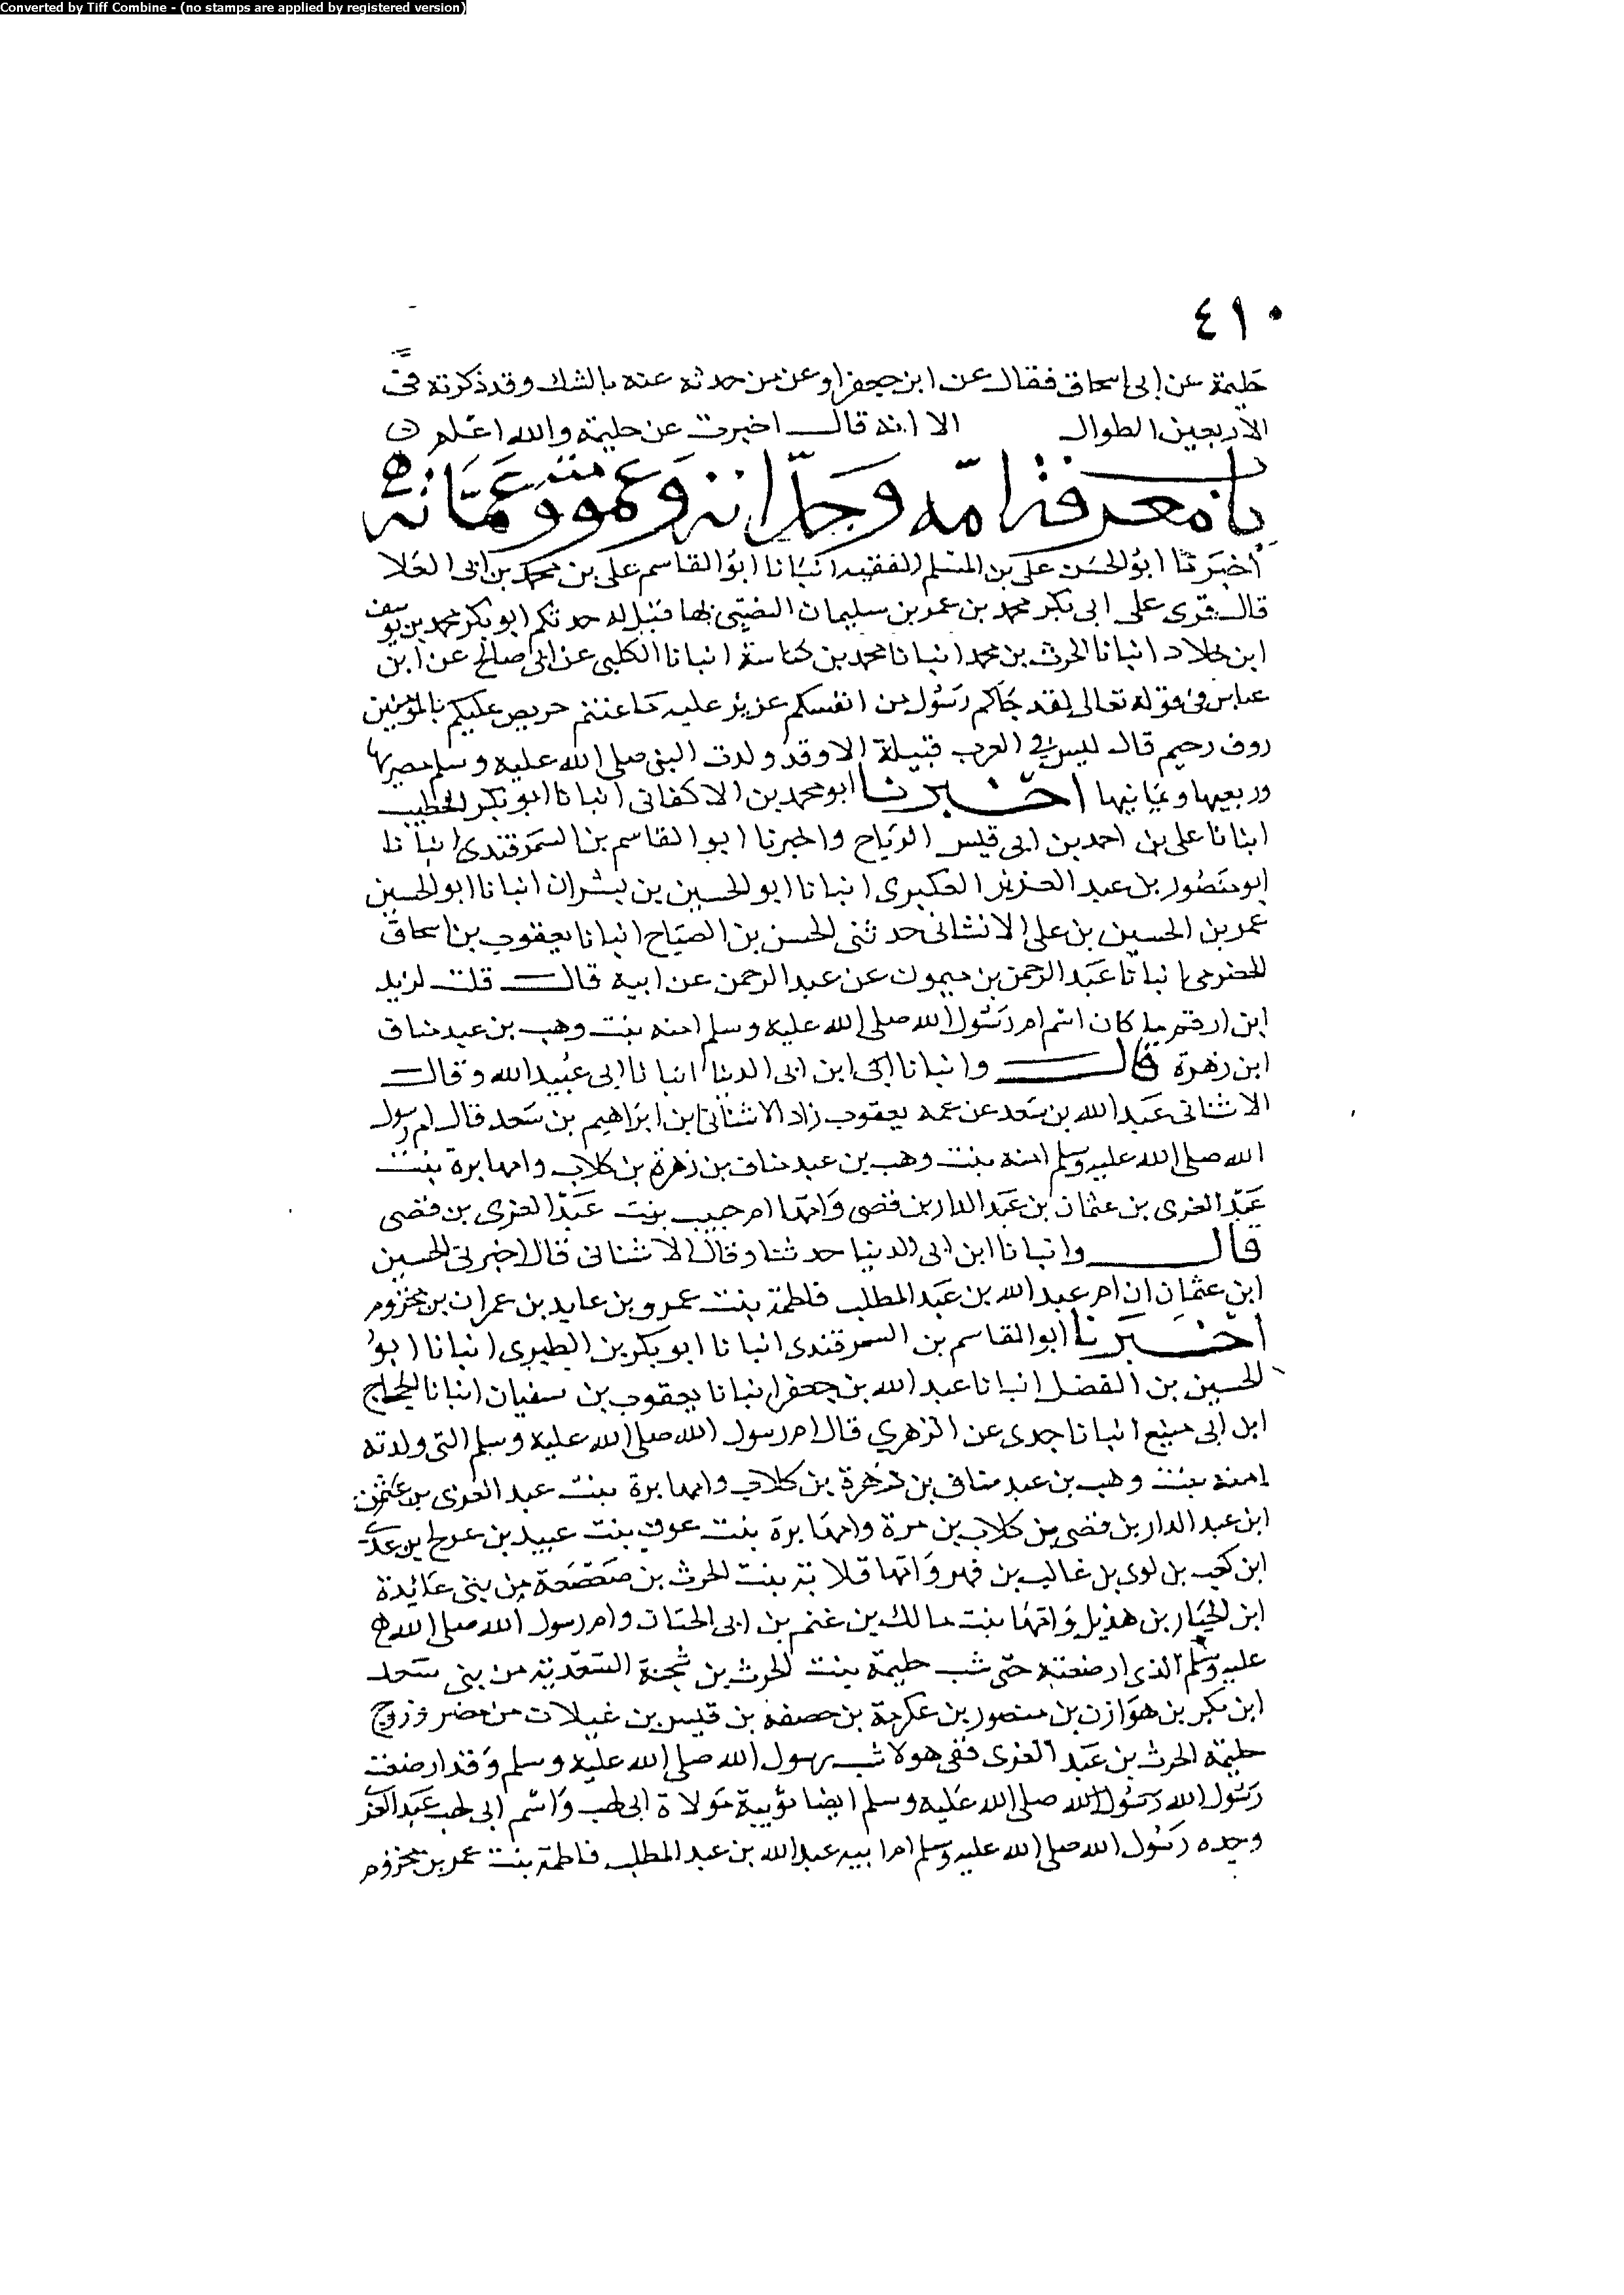 Converted by Tiff Combine - (no stamps are applied by registered version)
٤١٠
حليمة عن ابى اسحاق فقال عن ابن جعفر او عن من حدثه عنه بالشك وقد ذكرته فى
الاربعين الطوال الا انه قال اخبرت عن حليمة والله اعلم
باب معرفة امه وجداته وعمومته وعماته
أخبرنا ابو الحسن على بن المسلم الفقيه انبانا ابو القاسم على بن محمد بن ابى العلا
قال قرى على ابى بكر محمد بن عمر بن سليمان النصيبى بها قيل له حدثكم ابو بكر محمد بن يوسف
ابن خلاد انبانا الحرث بن محمد انبانا محمد بن كناسة انبانا الكلبى عن ابى صالح عن ابن
عباس فى قوله تعالى لقد جاكم رسول من انفسكم عزيز عليه ما عنتم حريص عليكم بالمومنين
روف رحيم قال ليس فى العرب قبيلة الا وقد ولدت النبى صلى الله عليه وسلم مضريها
وربعيها ويمانيها اخبرنا ابو محمد بن الاكفانى انبانا ابو بكر الخطيب
انبانا على بن احمد بن ابى قيس الرياح واخبرنا ابو القاسم بن السمرقندى انبانا
ابو منصور بن عبد العزيز العكبرى انبانا ابو الحسين بن بشران انبانا ابو الحسين
عمر بن الحسين بن على الانشانى حدثنى الحسن بن الصياح انبانا يعقوب بن اسحاق
الحضرمى انبانا عبد الرحمن بن ميمون عن عبد الرحمن عن ابيه قال قلت لزيد
ابن ارقم ما كان اسم ام رسول الله صلى الله عليه وسلم امنه بنت وهب بن عبد مناف
ابن زهرة قال وانبانا ابن ابى الدنيا انبانا ابى عبيد الله وقال
الاشنانى عبد الله بن سعد عن عمه يعقوب زاد الاشنانى بن ابراهيم بن سعد قال ام رسول
الله صلى الله عليه وسلم امنه بنت وهب بن عبد مناف بن زهرة بن كلاب وامها برة بنت
عبد العزى بن عثمان بن عبد الدار بن قصى وامها ام حبيب بنت عبد العزى بن قصى
قال وانبانا ابن ابى الدنيا حدثنا وقال الاشنانى قال اخبرنى الحسين
ابن عثمان ان ام عبد الله بن عبد المطلب فاطمة بنت عمرو بن عايد بن عمران بن مخزوم
أخبرنا ابو القاسم بن السمرقندى انبانا ابو بكر بن الطبرى انبانا ابو
الحسين بن الفضل انبانا عبد الله بن جعفر انبانا يعقوب بن سفيان انبانا الحجاج
ابن ابى منيع انبانا جدى عن الزهري قال ام رسول الله صلى الله عليه وسلم التى ولدته
امنه بنت وهب بن عبد مناف بن زهرة بن كلاب وامها برة بنت عبد العزى بن عثمن
ابن عبد الدار بن قصى بن كلاب بن مرة وامها برة بنت عوف بنت عبيد بن عوج بن عدى
ابن كعب بن لوى بن غالب بن فهر وامها قلابة بنت الحرث بن صعصعة من بنى عائدة
ابن الحيار بن هذيل وامها بنت مالك بن غنم بن ابى الحنان وام رسول الله صلى الله
عليه وسلم الذى ارضعته حتى شب حليمة بنت الحرث بن شجنة السعدية من بنى سعد
ابن بكر بن هوازن بن منصور بن عكرمة بن حصفه بن قيس بن غيلان من مضر وزوج
حليمة الحرث بن عبد العزى ففى هولا شب رسول الله صلى الله عليه وسلم وقد ارضعت
رسول الله رسول الله صلى الله عليه وسلم ايضا ثويبة مولاة ابى لهب واسم ابى لهب عبد العز
وجده رسول الله صلى الله عليه وسلم ام ابيه عبد الله بن عبد المطلب فاطمة بنت عمر بن مخزوم